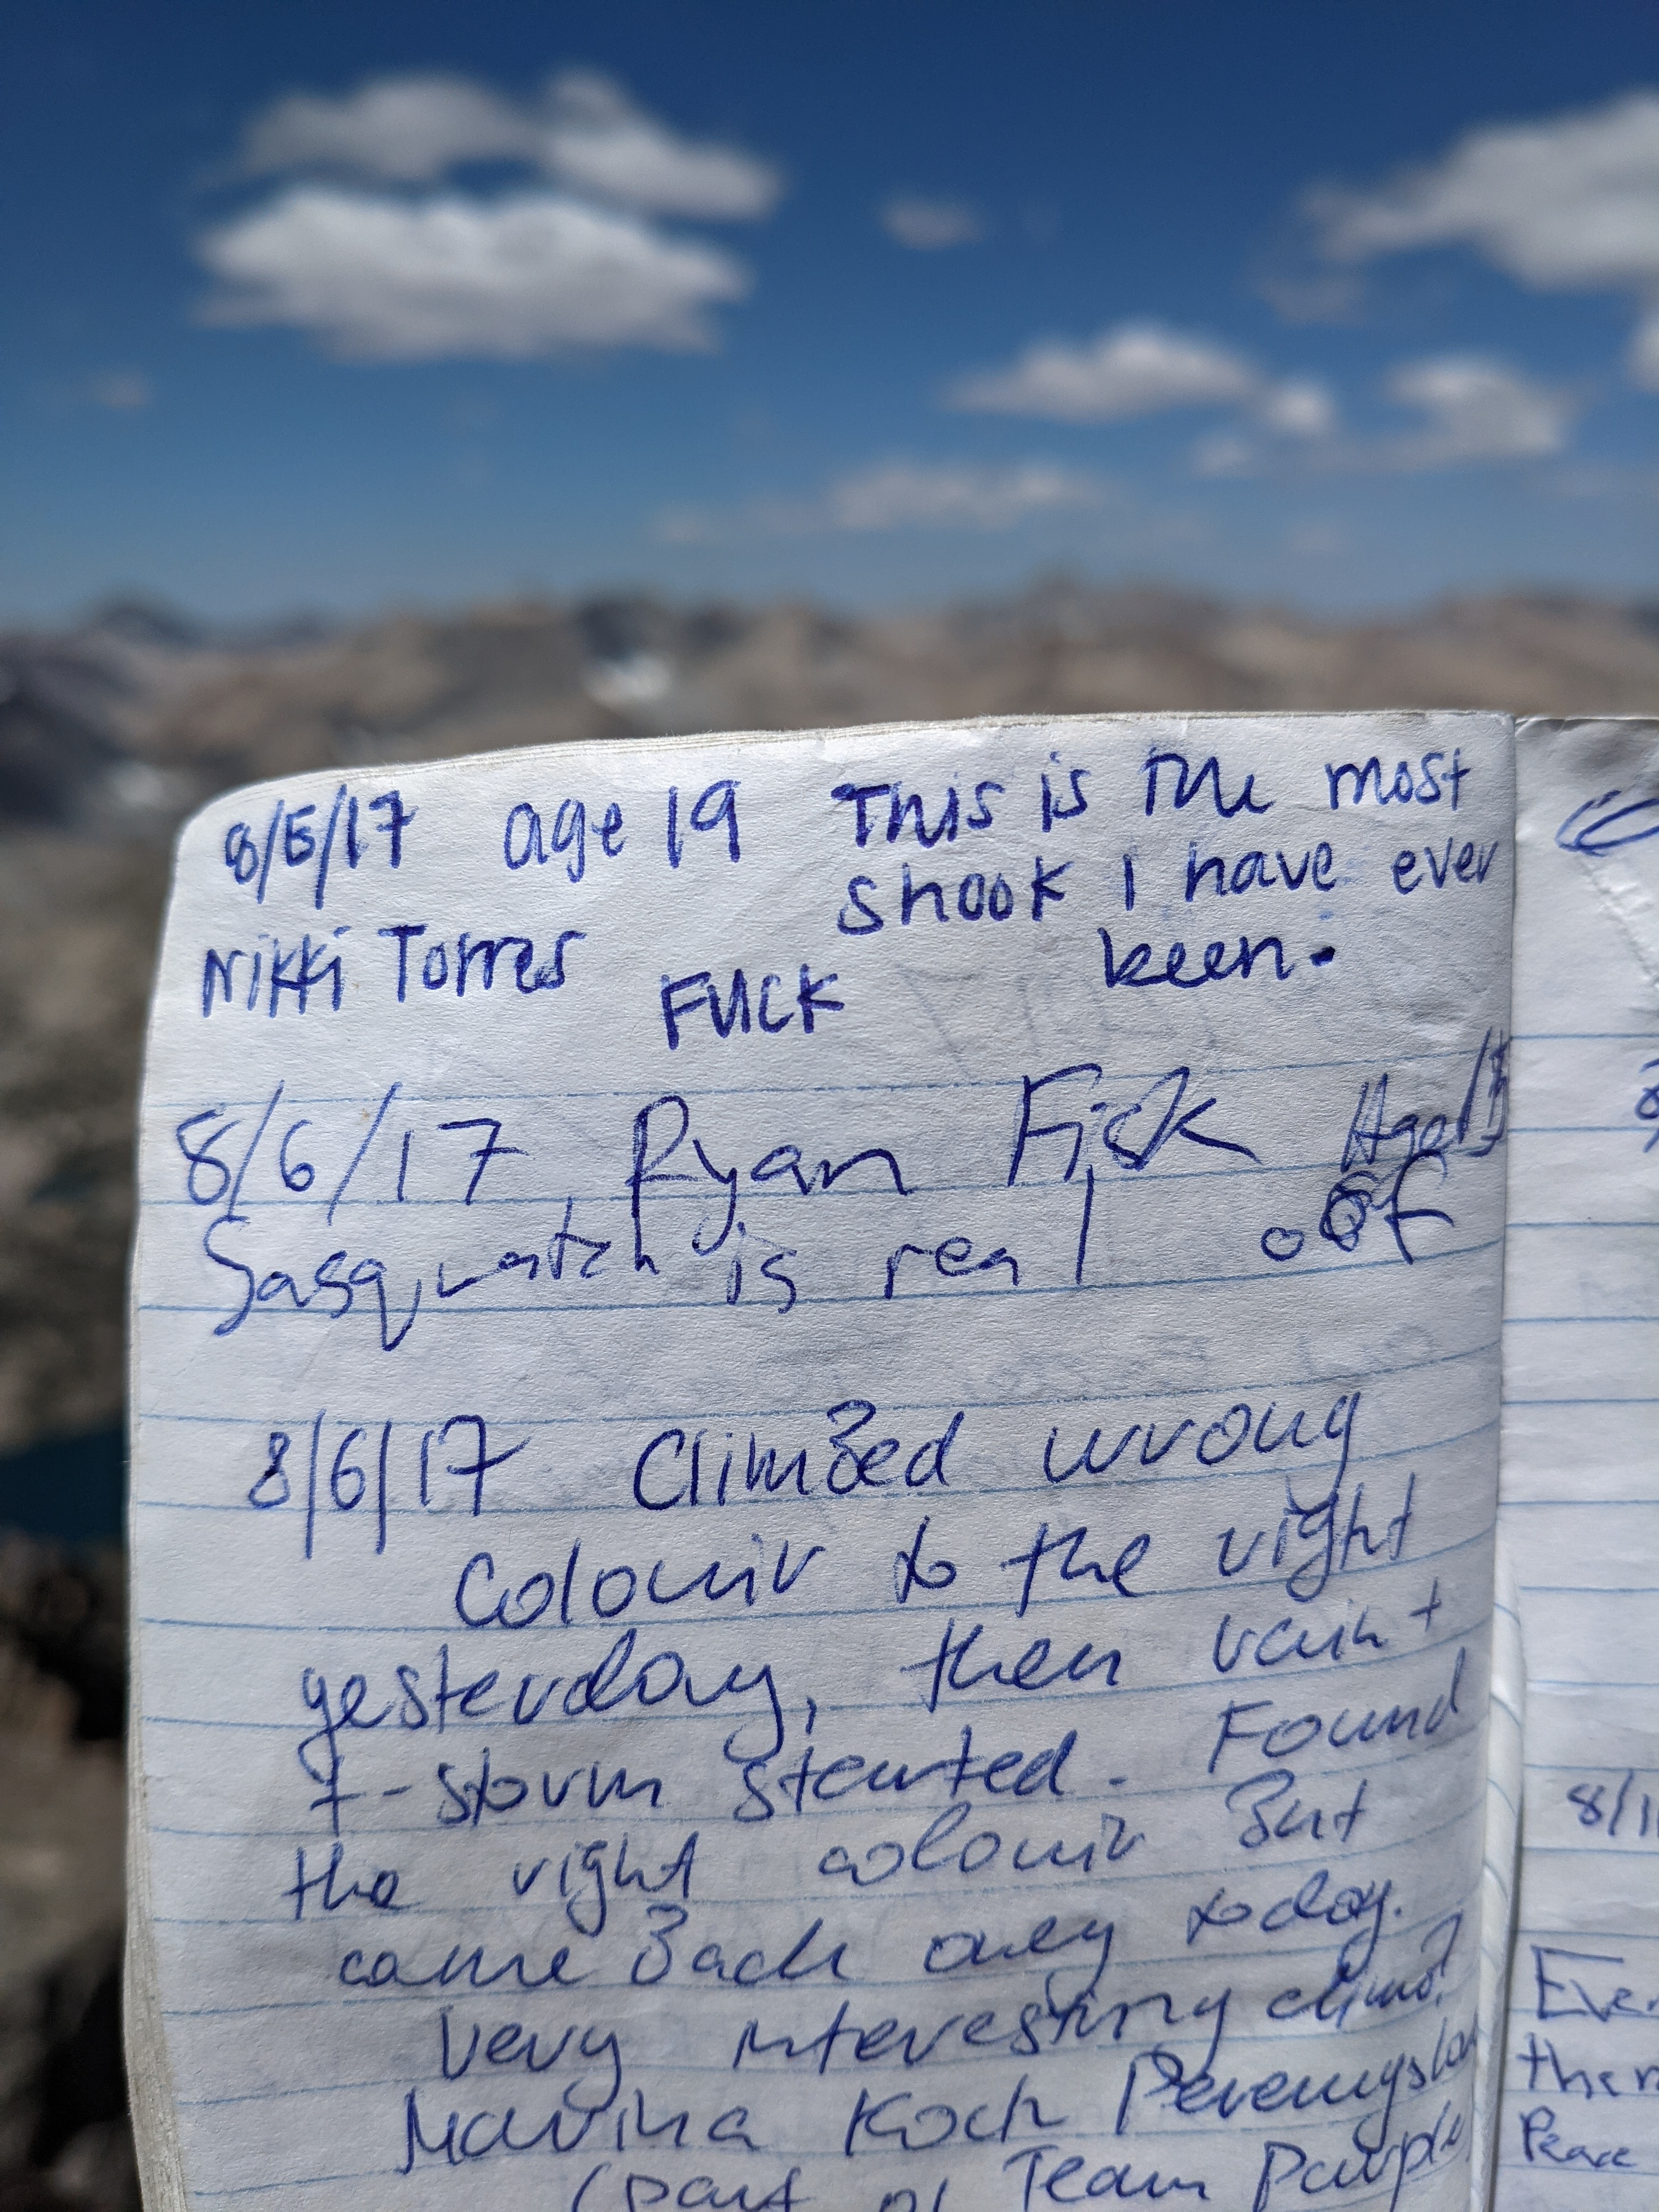 8/5/17 age 19 This is the most
shook I have ever
Nikki Torres been.
FUCK
8/6/17 Ryan Fisk Age
Sasquatch is real
8/6/17 Climbed wrong
Colouir to the right
yesterday, then rain +
t-storm started. Found
the right colouir But
came Back only today.
Very interesting climb!
Marina Koch
(part of Team Purple
8/1
Ever
then
Peace